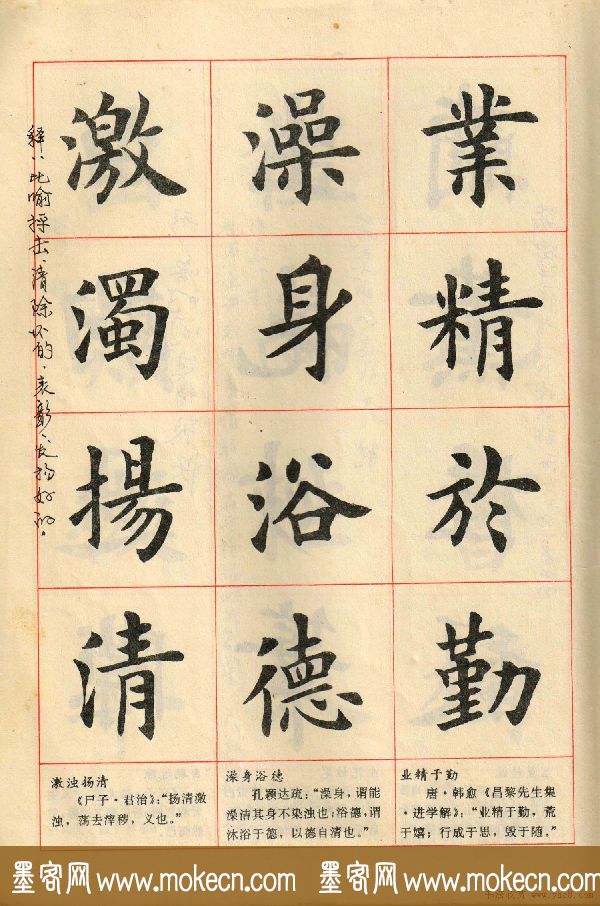 業精於勤
澡身浴德
激濁揚清
释、比喻抨击、清除坏的,表彰、发扬好的。
业精于勤
唐·韩愈《昌黎先生集
·进学解》:“业精于勤,荒
于嬉;行成于思,毁于随。”
澡身浴德
孔颖达疏:“澡身,谓能
澡洁其身不染浊也;浴德,谓
沐浴于德,以德自清也。”
激浊扬清
《尸子·君治》:“扬清激
浊,荡去滓秽,义也。”
墨客网 www.mokecn.com 墨客网 www.mokecn.com